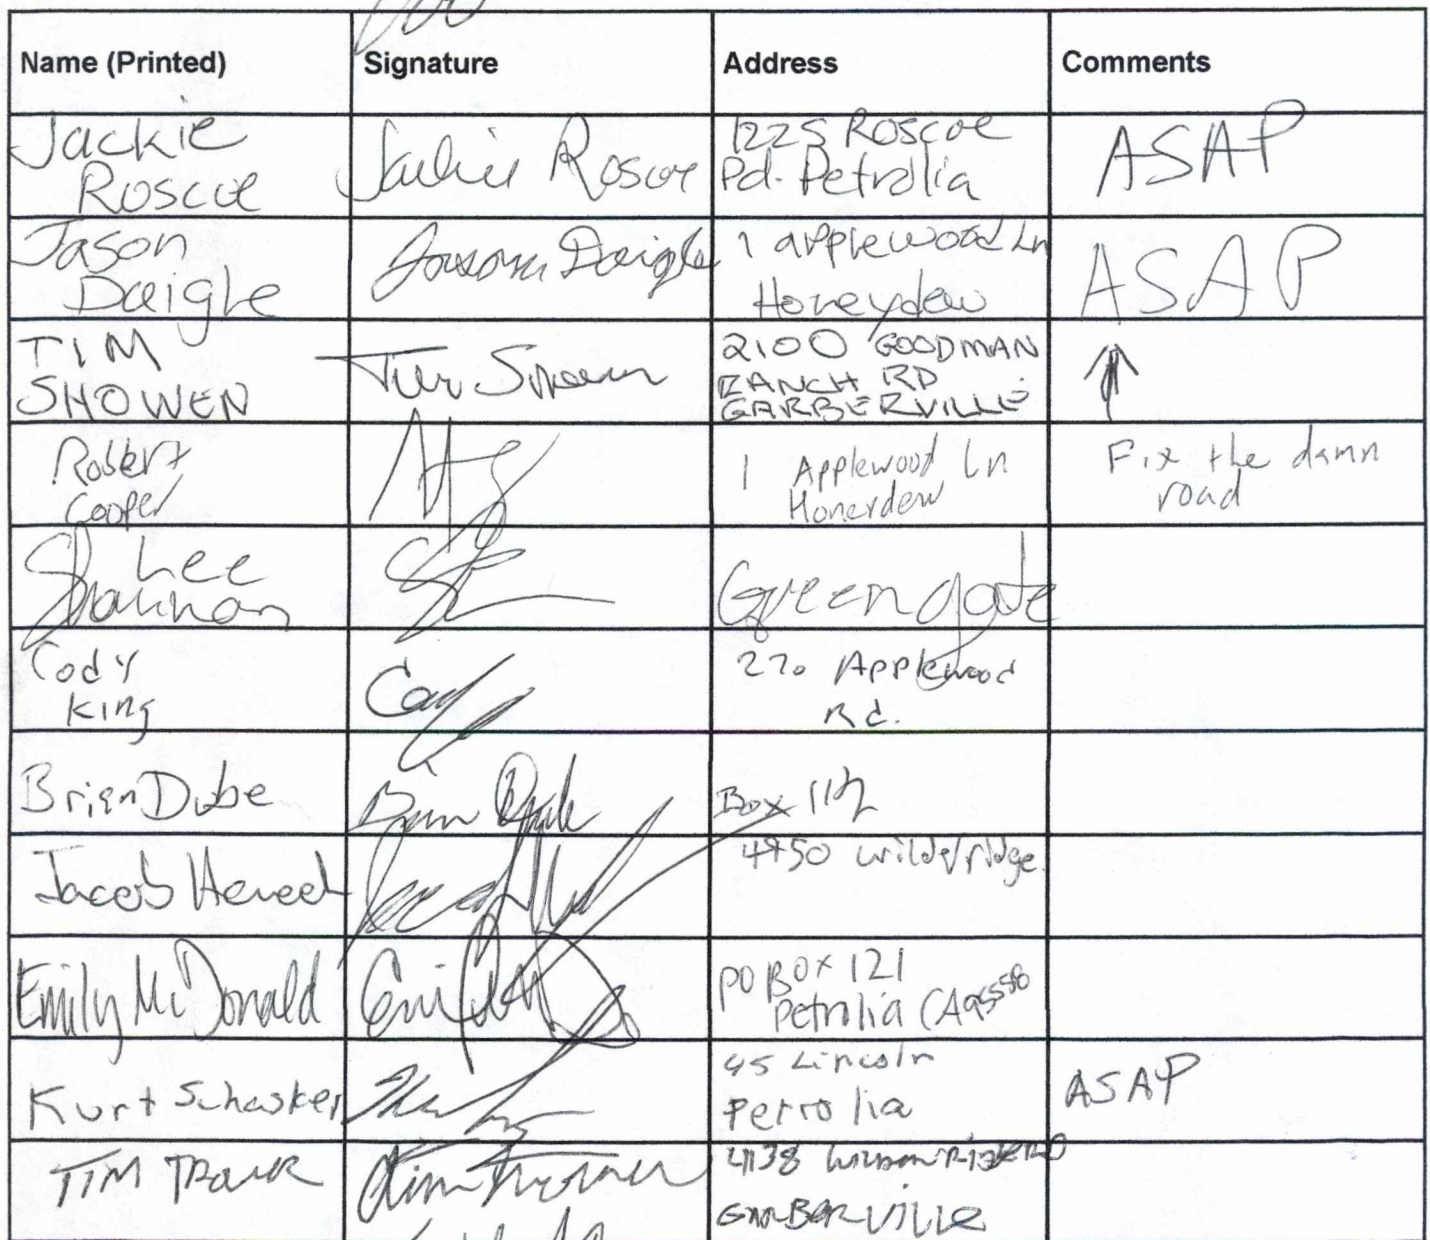 Name (Printed) Signature Address Comments
Jackie
Roscoe
Jackie Roscoe
1225 Roscoe
Rd. Petrolia
ASAP
Jason
Daigle
Daigle
1 applewood Ln
Honeydew
ASAP
TIM
SHOWEN
Tim
2100 GOODMAN
RANCH RD
GARBERVILLE
↑
Robert
Cooper
1 Applewood Ln
Honeydew
Fix the damn
road
Lee
Shannon
Green gate
Cody
King
Cody
270 Applewood
Rd.
Brian Dube
Brian Dube
Box
Jacob
4450
Emily McDonald
PO BOX 121
Petrolia CA 95558
Kurt Schasker
45 Lincoln
Petrolia
ASAP
TIM
Tim
GARBERVILLE